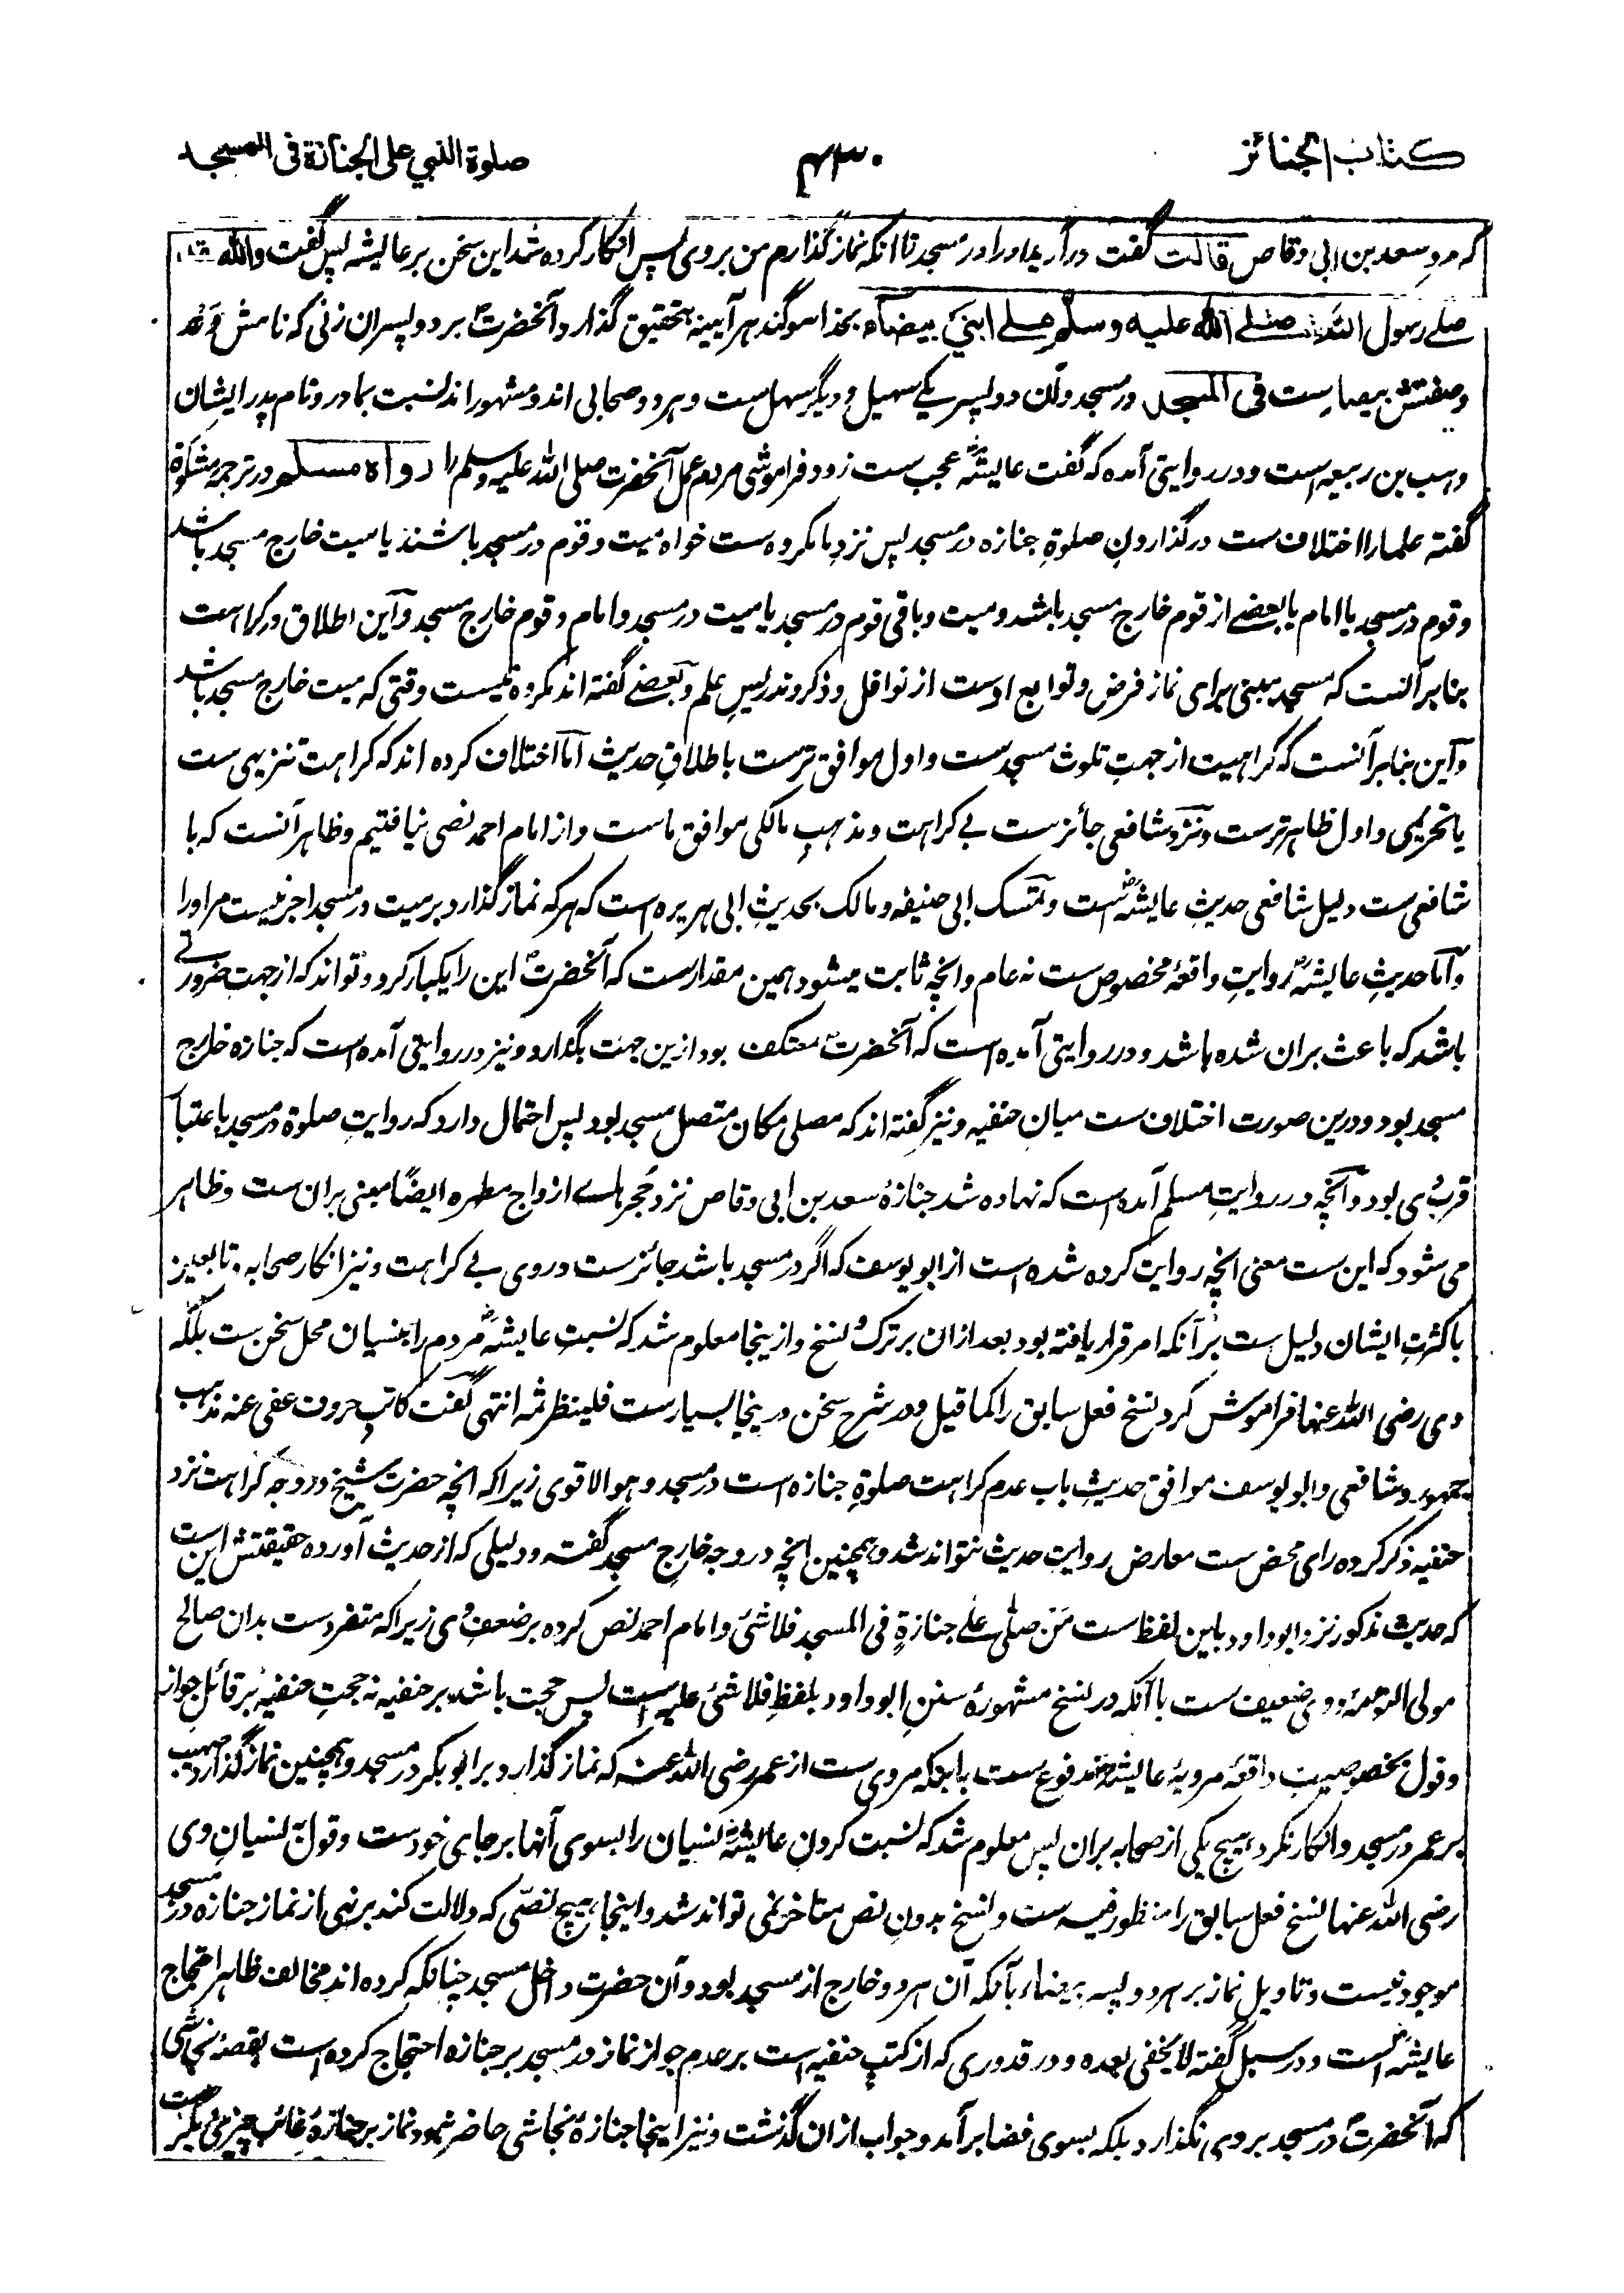 کتاب الجنائز
۴۳۰
صلوة النبي على الجنازة فى المسجد
که مرد سعد بن ابی وقاص قالت گفت در آرید او را در مسجد تا آنکه نماز گذارم من بروی پس انکار کرده شد این سخن بر عایشه پس گفت والله
صلے رسول الله صلے الله علیه وسلم علے ابنی بیضاء بخدا سوگند هر آیینه بتحقیق گذارد آنحضرت بر دو پسران زنی که نامش
وصفتش بیضاست فی المسجد در مسجد و آن دو پسر یکے سهیل و دیگر سهل ست و هر دو صحابی اند و مشهور اند نسبت بمادر و نام پدر ایشان
وهب بن ربیعه است و در روایتی آمده که گفت عایشهؓ عجب ست زود فراموشی مردم عمل آنحضرت صلی الله علیه وسلم را رواه مسلم در ترجمهٔ مشکوة
گفته علما را اختلاف ست در گذاردن صلوةِ جنازه در مسجد پس نزدِ ما مکروه ست خواه میت و قوم در مسجد باشند یا میت خارج مسجد باشد
و قوم در مسجد یا امام با بعضے از قوم خارج مسجد باشد و میت و باقی قوم در مسجد یا میت در مسجد و امام و قوم خارج مسجد و این اطلاق در کراهت
بنابر آنست که مسجد مبنی برای نماز فرض و توابع اوست از نوافل و ذکر و تدریسِ علم و بعضے گفته اند مکروه نیست وقتی که میت خارج مسجد باشد
و این بنابر آنست که کراهیت از جهتِ تلوث مسجد ست و اول موافق ترست باطلاقِ حدیث اما اختلاف کرده اند که کراهت تنزیهی ست
یا تحریمی و اول ظاهرترست و نزد شافعی جائزست بے کراهت و مذهبِ مالکی موافق ماست و از امام احمد نصی نیافتیم و ظاهر آنست که با
شافعی ست دلیل شافعی حدیثِ عایشهؓ است و تمسک ابی حنیفه و مالک بحدیثِ ابی هریره است که هر که نماز گذارد بر میت در مسجد اجر نیست مر او را
و اما حدیثِ عایشهؓ روایتِ واقعهٔ مخصوص ست نه عام و انچه ثابت میشود همین مقدارست که آنحضرتؐ این را یکبار کرد و تواند که از جهت ضرورتے
باشد که باعث بران شده باشد و در روایتی آمده است که آنحضرتؐ معتکف بود ازین جهت بگذارد و نیز در روایتی آمده است که جنازه خارج
مسجد بود و درین صورت اختلاف ست میان حنفیه و نیز گفته اند که مصلی مکان متصل مسجد بود پس احتمال دارد که روایتِ صلوة در مسجد باعتبار
قربِ وی بود و انچه در روایتِ مسلم آمده است که نهاده شد جنازهٔ سعد بن ابی وقاص نزد حُجرهاے ازواج مطهره ایضاً مبنی بران ست و ظاهر
می شود که این ست معنی انچه روایت کرده شده است از ابو یوسف که اگر در مسجد باشد جائزست در وی بے کراهت و نیز انکار صحابه و تابعین
با کثرتِ ایشان دلیل ست بر آنکه امر قرار یافته بود بعد ازان بر ترک و نسخ و ازینجا معلوم شد که نسبتِ عایشهؓ مردم را بنسیان محل سخن ست بلکه
وی رضی الله عنها فراموش کرد نسخ فعل سابق را کما قیل و در شرح سخن درینجا بسیارست فلینظر ثمه انتهی گفت کاتبِ حروف عفی عنه مذهب
جمهور و شافعی و ابو یوسف موافق حدیثِ باب عدم کراهت صلوةِ جنازه است در مسجد و هو الاقوی زیرا که انچه حضرت شیخ در وجه کراهت نزد
حنفیه ذکر کرده رای محض ست معارض روایتِ حدیث نتواند شد و همچنین انچه در وجه خارجِ مسجد گفته و دلیلی که از حدیث آورده حقیقتش این ست
که حدیث مذکور نزد ابو داود باین لفظ ست مَن صلّی علے جنازةٍ فی المسجد فلا شئ و امام احمد نص کرده بر ضعفِ وی زیرا که متفردست بدان صالح
مولی التوءمه و وی ضعیف ست با آنکه در نسخ مشهورهٔ سننِ ابو داود بلفظِ فلا شئ علیه است پس حجت باشد بر حنفیه نه حجتِ حنفیه بر قائل جواز
و قول بخصوصیت واقعهٔ مرویهٔ عایشه مدفوع ست بانکه مروی ست از عمر رضی الله عنه که نماز گذارد بر ابو بکر در مسجد و همچنین نماز گذارد صهیب
بر عمر در مسجد و انکار نکرد هیچ یکی از صحابه بران پس معلوم شد که نسبت کردن عایشهؓ نسیان را بسوی آنها بر جای خودست و قول به نسیانِ وی
رضی الله عنها نسخ فعل سابق را منظور فیه ست و نسخ بدونِ نص متاخر نمی تواند شد و اینجا هیچ نصّی که دلالت کند بر نهی از نماز جنازه در مسجد
موجود نیست و تاویل نماز بر هر دو پسر بیضاء بآنکه آن هر دو خارج از مسجد بود و آن حضرت داخل مسجد چنانکه کرده اند مخالف ظاهر احتجاج
عایشهؓ است و در سبل گفته لا یخفی بعده و در قدوری که از کتبِ حنفیه است بر عدمِ جواز نماز در مسجد بر جنازه احتجاج کرده است بقصهٔ نجاشی
که آنحضرتؐ در مسجد بر وی نگذارد بلکه بسوی فضا برآمد و جواب ازان گذشت و نیز اینجا جنازهٔ نجاشی حاضر نبود و نماز بر جنازهٔ غائب چیزی دیگر ست